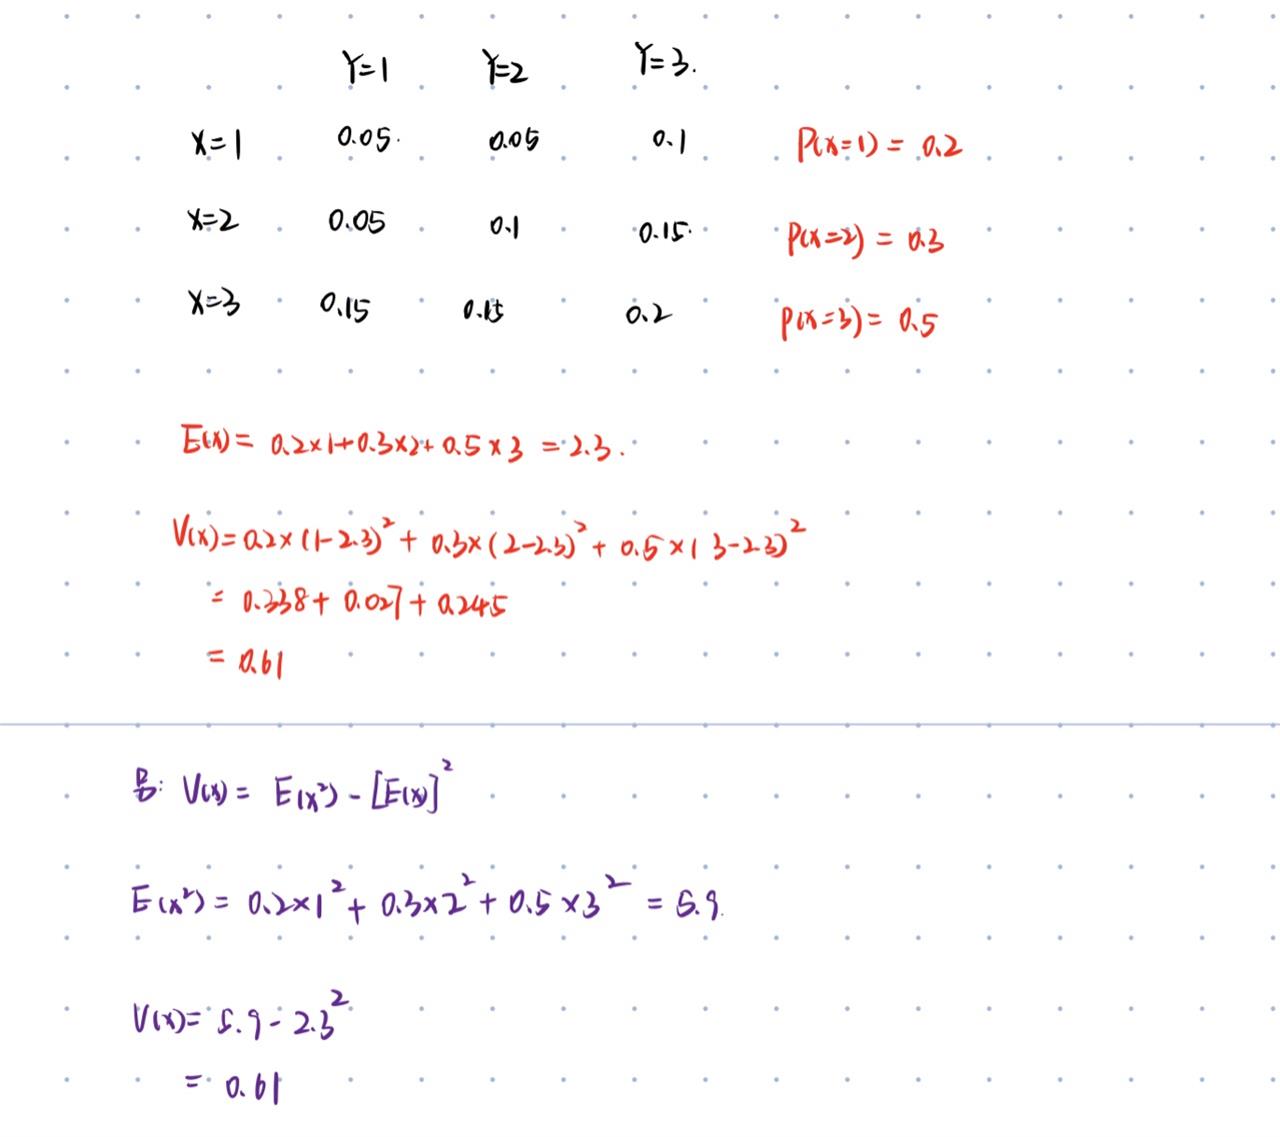 Y=1 Y=2 Y=3.
X=1 0.05 0.05 0.1 P(X=1) = 0.2
X=2 0.05 0.1 0.15 P(X=2) = 0.3
X=3 0.15 0.15 0.2 P(X=3) = 0.5
E(X) = 0.2×1+0.3×2+0.5×3 = 2.3.
V(X) = 0.2×(1-2.3)² + 0.3×(2-2.3)² + 0.5×(3-2.3)²
= 0.338 + 0.027 + 0.245
= 0.61
V(X) = E(X²) - [E(X)]²
E(X²) = 0.2×1² + 0.3×2² + 0.5×3² = 5.9.
V(X) = 5.9 - 2.3²
= 0.61